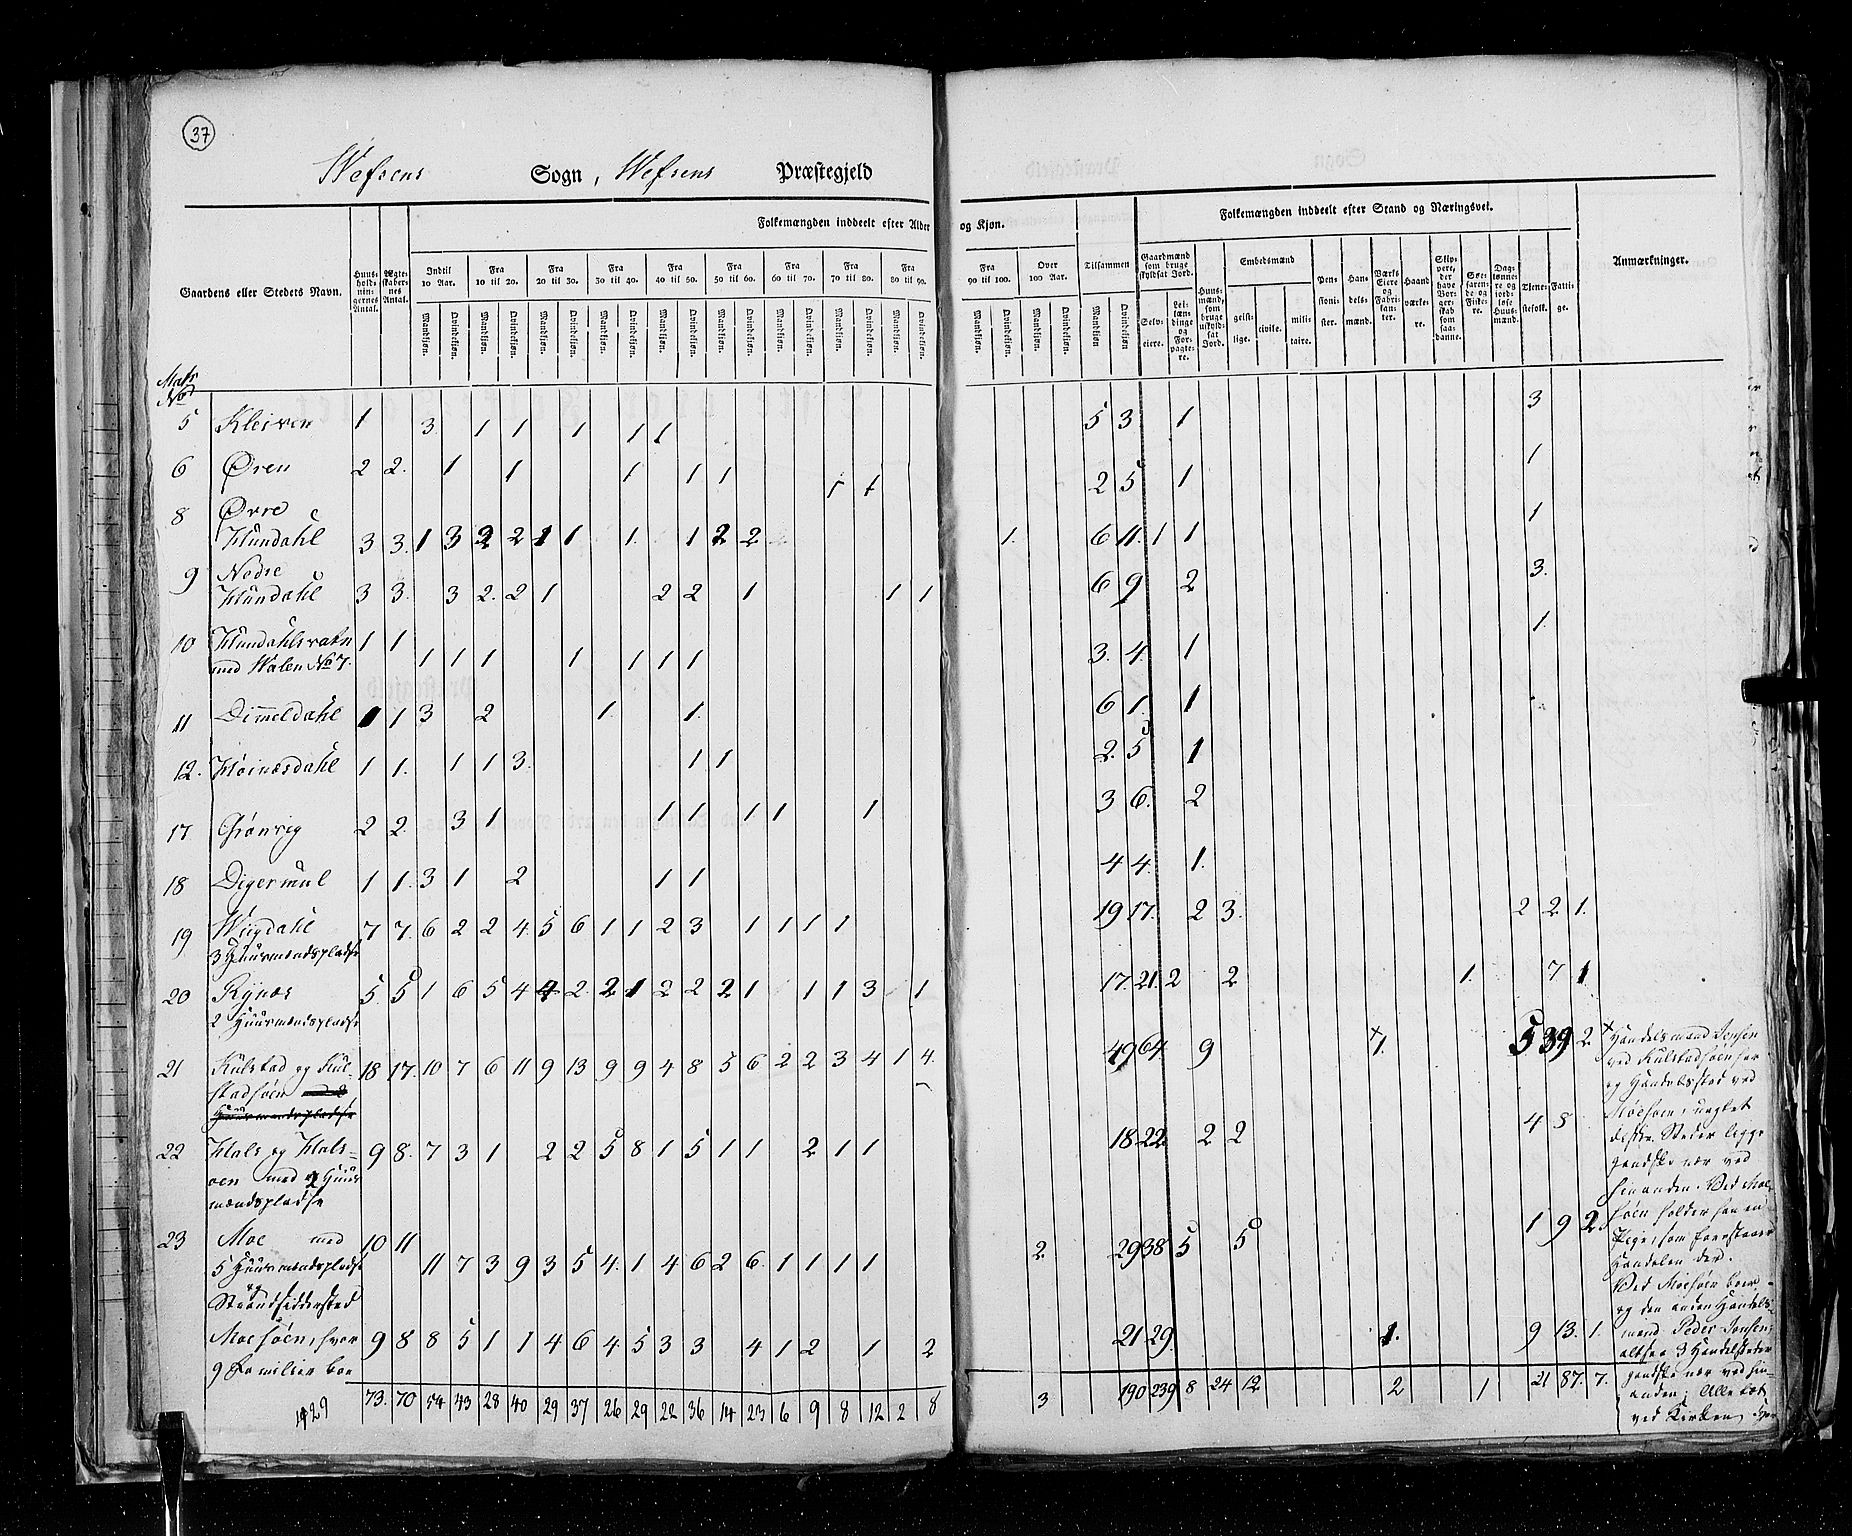 37
Wefsens Sogn, Wefsens Præstegjeld
Folkemængden inddeelt efter Alder og Kjøn.
Folkemængden inddeelt efter Stand og Næringsvei.
Gaardens eller Stedets Navn.
Huusholdningernes Antal.
Ægteskabernes Antal.
Indtil 10 Aar.
Fra 10 til 20.
Fra 20 til 30.
Fra 30 til 40.
Fra 40 til 50.
Fra 50 til 60.
Fra 60 til 70.
Fra 70 til 80.
Fra 80 til 90.
Fra 90 til 100.
Over 100 Aar.
Tilsammen
Mandkjøn. Qvindekjøn.
Gaardmænd som bruge skyldsat Jord.
Selveiere.
Leilændinge og Forpagtere.
Huusmænd, som bruge uskyldsat Jord.
Embedsmænd
geistlige.
civile.
militaire.
Pensionister.
Handelsmænd.
Værks Eiere og Fabrikanter.
Haandværkere.
Skippere, der have Borgerskab som saadanne.
Søefarende og Fiskere.
Daglønnere og jordløse Huusmænd.
Tjenestefolk.
Fattige.
Anmærkninger.
Matr No
5 Kleiven 1 3 1 1 1 1 1 5 3 1 3
6 Øren 2 2. 1 1 1 1 1 1 1 2 5 1 1
8 Øvre
Hundahl 3 3. 1 3 2 2 1 1 1. 1 2 2 1. 6 11. 1 1 1
9 Nedre
Hundahl 3 3. 3 2. 2 1 2 2 1 1 1 6 9 2 3.
10 Hundahlsvatn 1 1
med Walen No 7. 1 1 1 1 1 1 1 3. 4. 1 1.
11 Dimeldahl 1 1 3 2 1. 1. 6 1. 1
12. Høinæsdahl 1 1. 1 1 3. 1 1 2. 5 1
17 Grønvig 2 2. 3 1 1 1 1 1 1 3 6. 2
18 Digermul 1 1. 3 1 2 1 1 4 4. 1.
19 7 7. 6 2 2 4. 5 6 1 1 2 3 1 1 1 1 19 17. 2 3. 2 2 1.
3 Huusmandspladse
20 Rynæs 5 5 1 6 5 4 4 2. 2 1 2 2 2 1 1 1 3 1 17. 21. 2 2 1. 7 1
2 Huusmandspladse
21 Kulstad og Kul- 18 17. 10 7 6 11 9 13 9 9 4 8 5 6 2 2 3 4 1 4. 49 64 9 × 1. 5 39 2
stadsøen med 2
Huusmandspladse
22 Hals og Hals- 9 8. 7 3 1 2 2 5 8 1 5 1 1 2 1 1 18 22. 2 2 4 5
øen med 2 Huus
mandspladse
23 Moe med 10 11
5 Huusmandspladse 11 7 3 9 3 5 4. 1 4 6 2 6. 1 1 1 1 2. 29 38 5 5 1 9 2
og
Strandsiddersted
Moesøen, hvor 9 8 8 5 1 1 4 6 4. 5 3 3 4 1 2 1 2 21 29. 1. 9 13. 1.
9 Familier boe
73. 70 54 43 28 40 29 37 26 29 22 36 14 23 6 9 8 12 2 8 3 190 239 8 24 12 2 1 21 87. 7.
429
× Handelsmand Jepsen
ved Kulstadsøen har
og Handelssted ved
Moesøen, uagtet
disse Steder ligge
gandske nær ved
hinanden. Ved Moe-
søen holder han en
Pige, som forestaaer
Handelen der.
Ved Moesøen boer
og den anden Handels-
mand Peder Jonsen,
altsaa 3 Handelsteder
gandske nær ved hin-
anden; Alle tæt
ved Kirken,